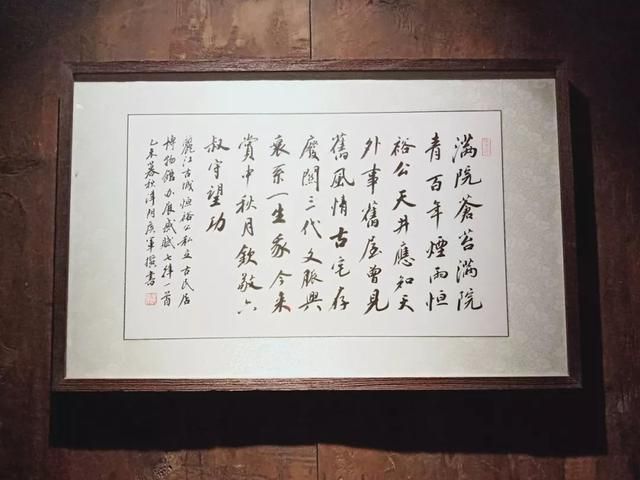 滿院蒼苔滿院
青百年煙雨恒
裕公天井應知天
外事舊屋曾見
舊風情古宅存
廢關三代文脈興
衰系一生我今来
賞中秋月欽敬六
叔守望功
麗江古城恒裕公私立古民居
博物館办展感賦七律一首
乙未暮秋津門軍撰書